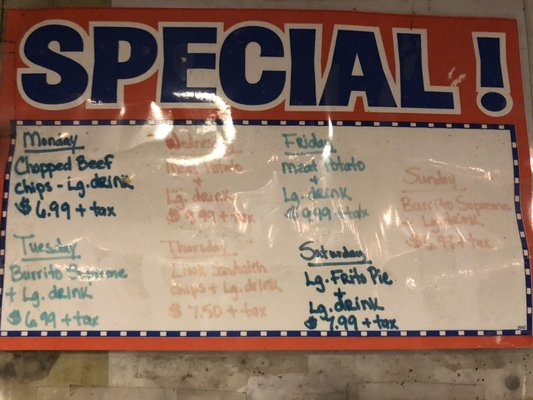 SPECIAL!
Monday
Chopped Beef
chips - Lg. drink
$6.99 + tax
Tuesday
Burrito Supreme
+ Lg. drink
$6.99 + tax
Wednesday
Meat Potato
+
Lg. drink
$9.99 + tax
Thursday
Link Sandwich
Chips + Lg. drink
$7.50 + tax
Friday
Meat Potato
+
Lg. drink
$9.99 + tax
Saturday
Lg. Frito Pie
+
Lg. drink
$7.99 + tax
Sunday
Burrito Supreme
+ Lg. drink
$6.99 + tax